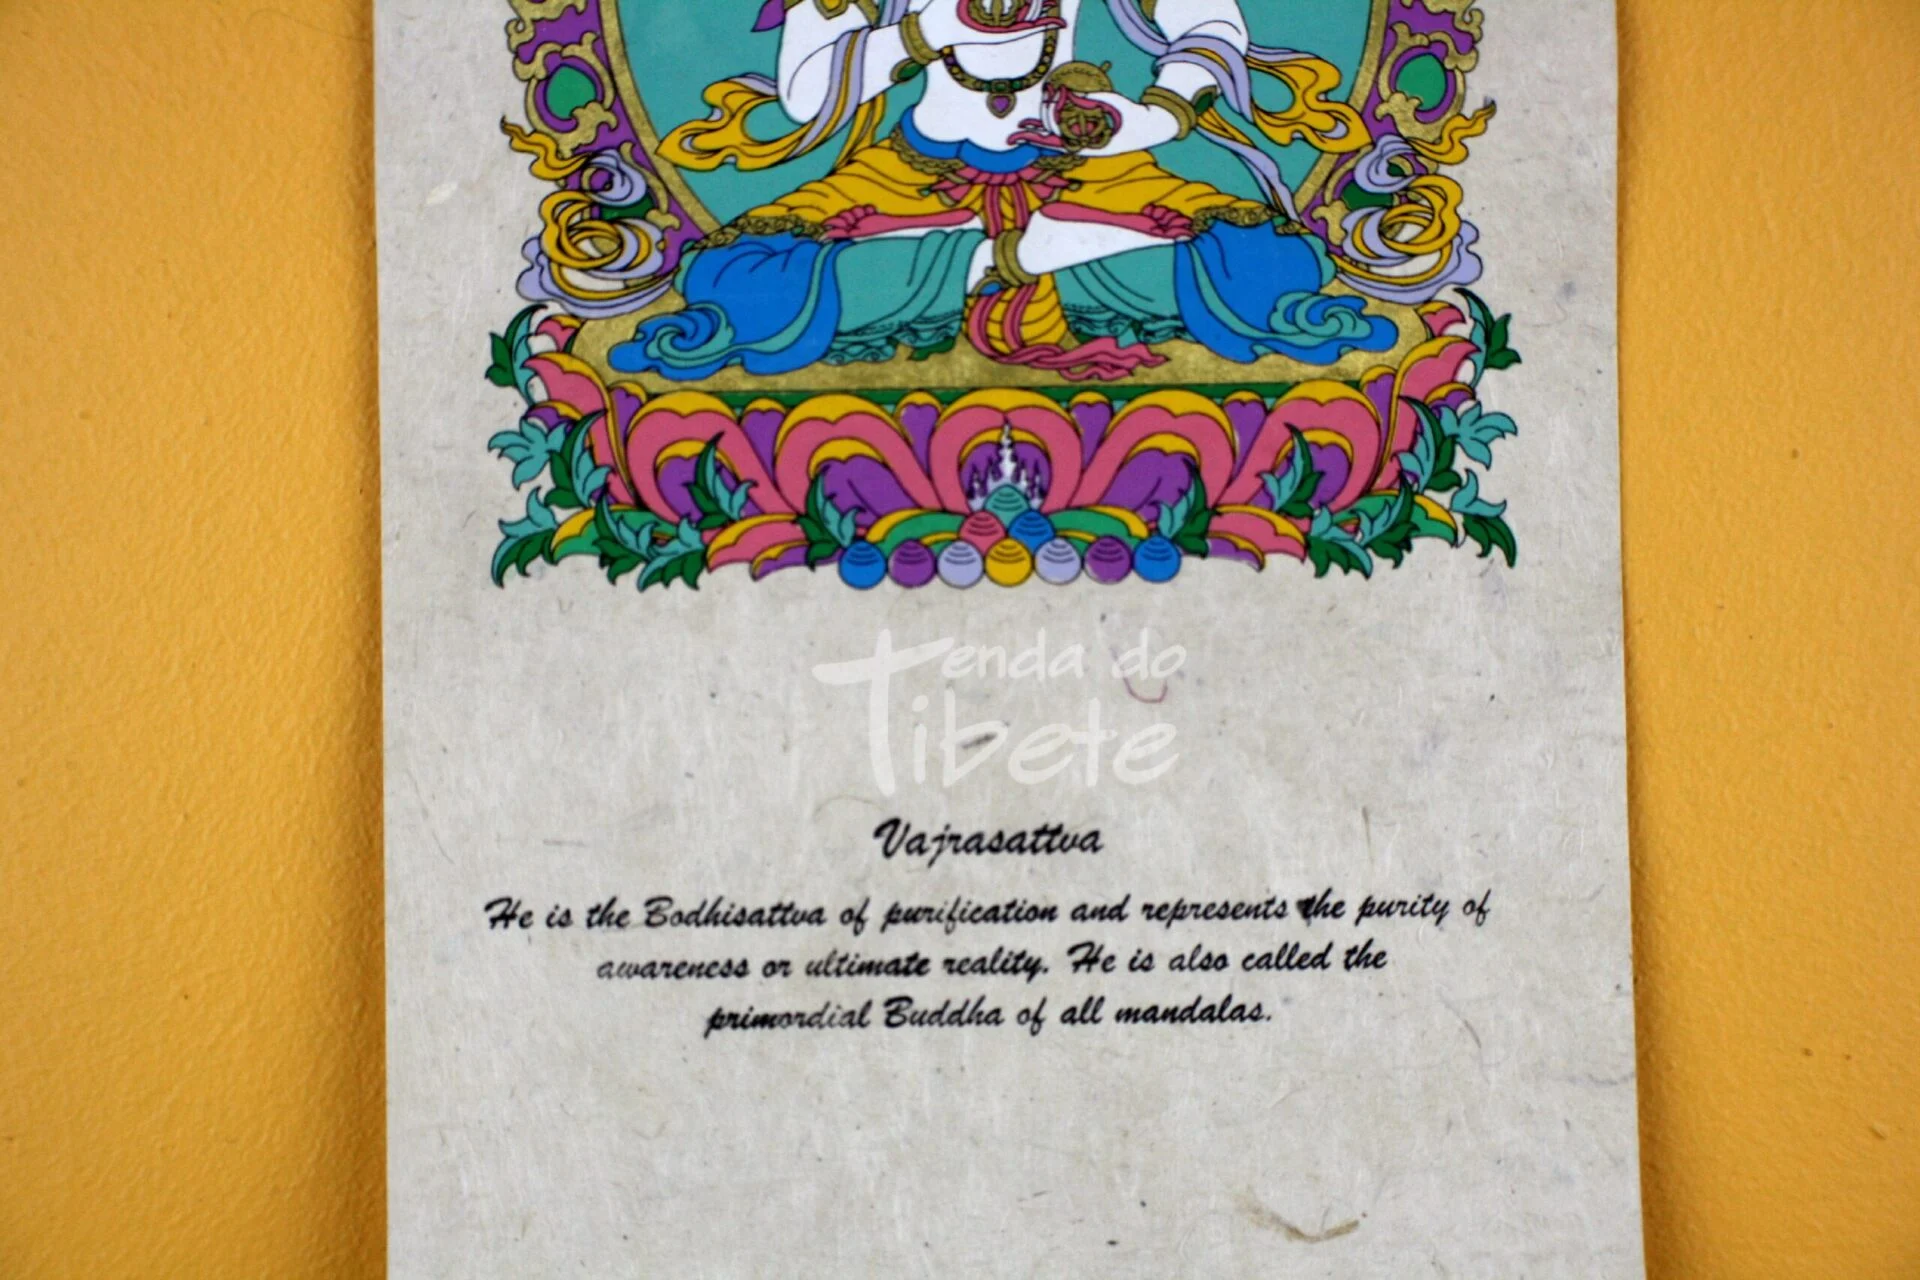 Tenda do
Tibete
Vajrasattva
He is the Bodhisattva of purification and represents the purity of
awareness or ultimate reality. He is also called the
primordial Buddha of all mandalas.